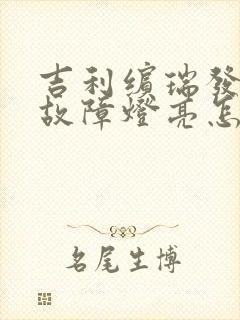 吉利繽瑞發
故障燈亮怎
名尾生博